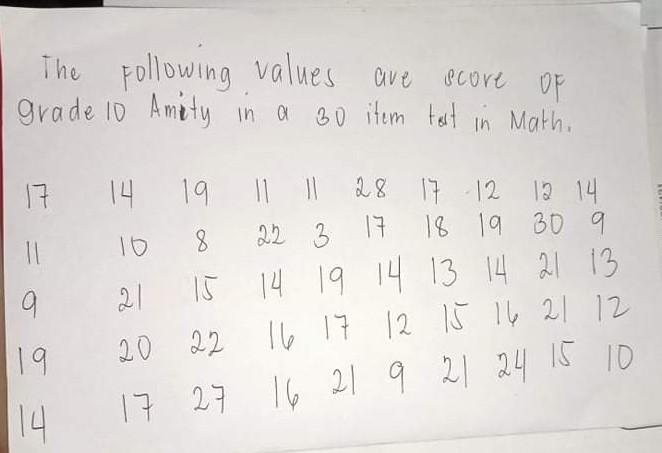 The following values are score of
grade 10 Amity in a 30 item test in Math.
17 14 19 11 11 28 17 12 12 14
11 10 8 22 3 17 18 19 30 9
9 21 15 14 19 14 13 14 21 13
19 20 22 16 17 12 15 16 21 12
14 17 27 16 21 9 21 24 15 10